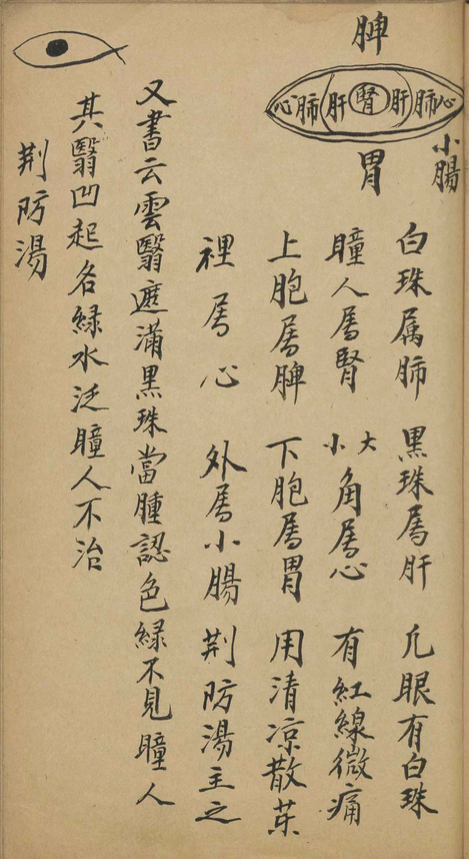 脾
心肺肝腎肝肺心
胃
小腸
白珠属肺 黑珠属肝 凢眼有白珠
瞳人属腎 大小角属心 有紅線微痛
上胞属脾 下胞属胃 用清凉散茱
裡属心 外属小腸 荆防湯主之
又書云雲翳遮滿黑珠當腫認色緑不見瞳人
其翳凹起名緑水泛瞳人不治
荆防湯